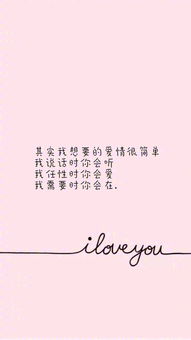 其实我想要的爱情很简单
我说话时你会听
我任性时你会爱
我需要时你会在.
iloveyou